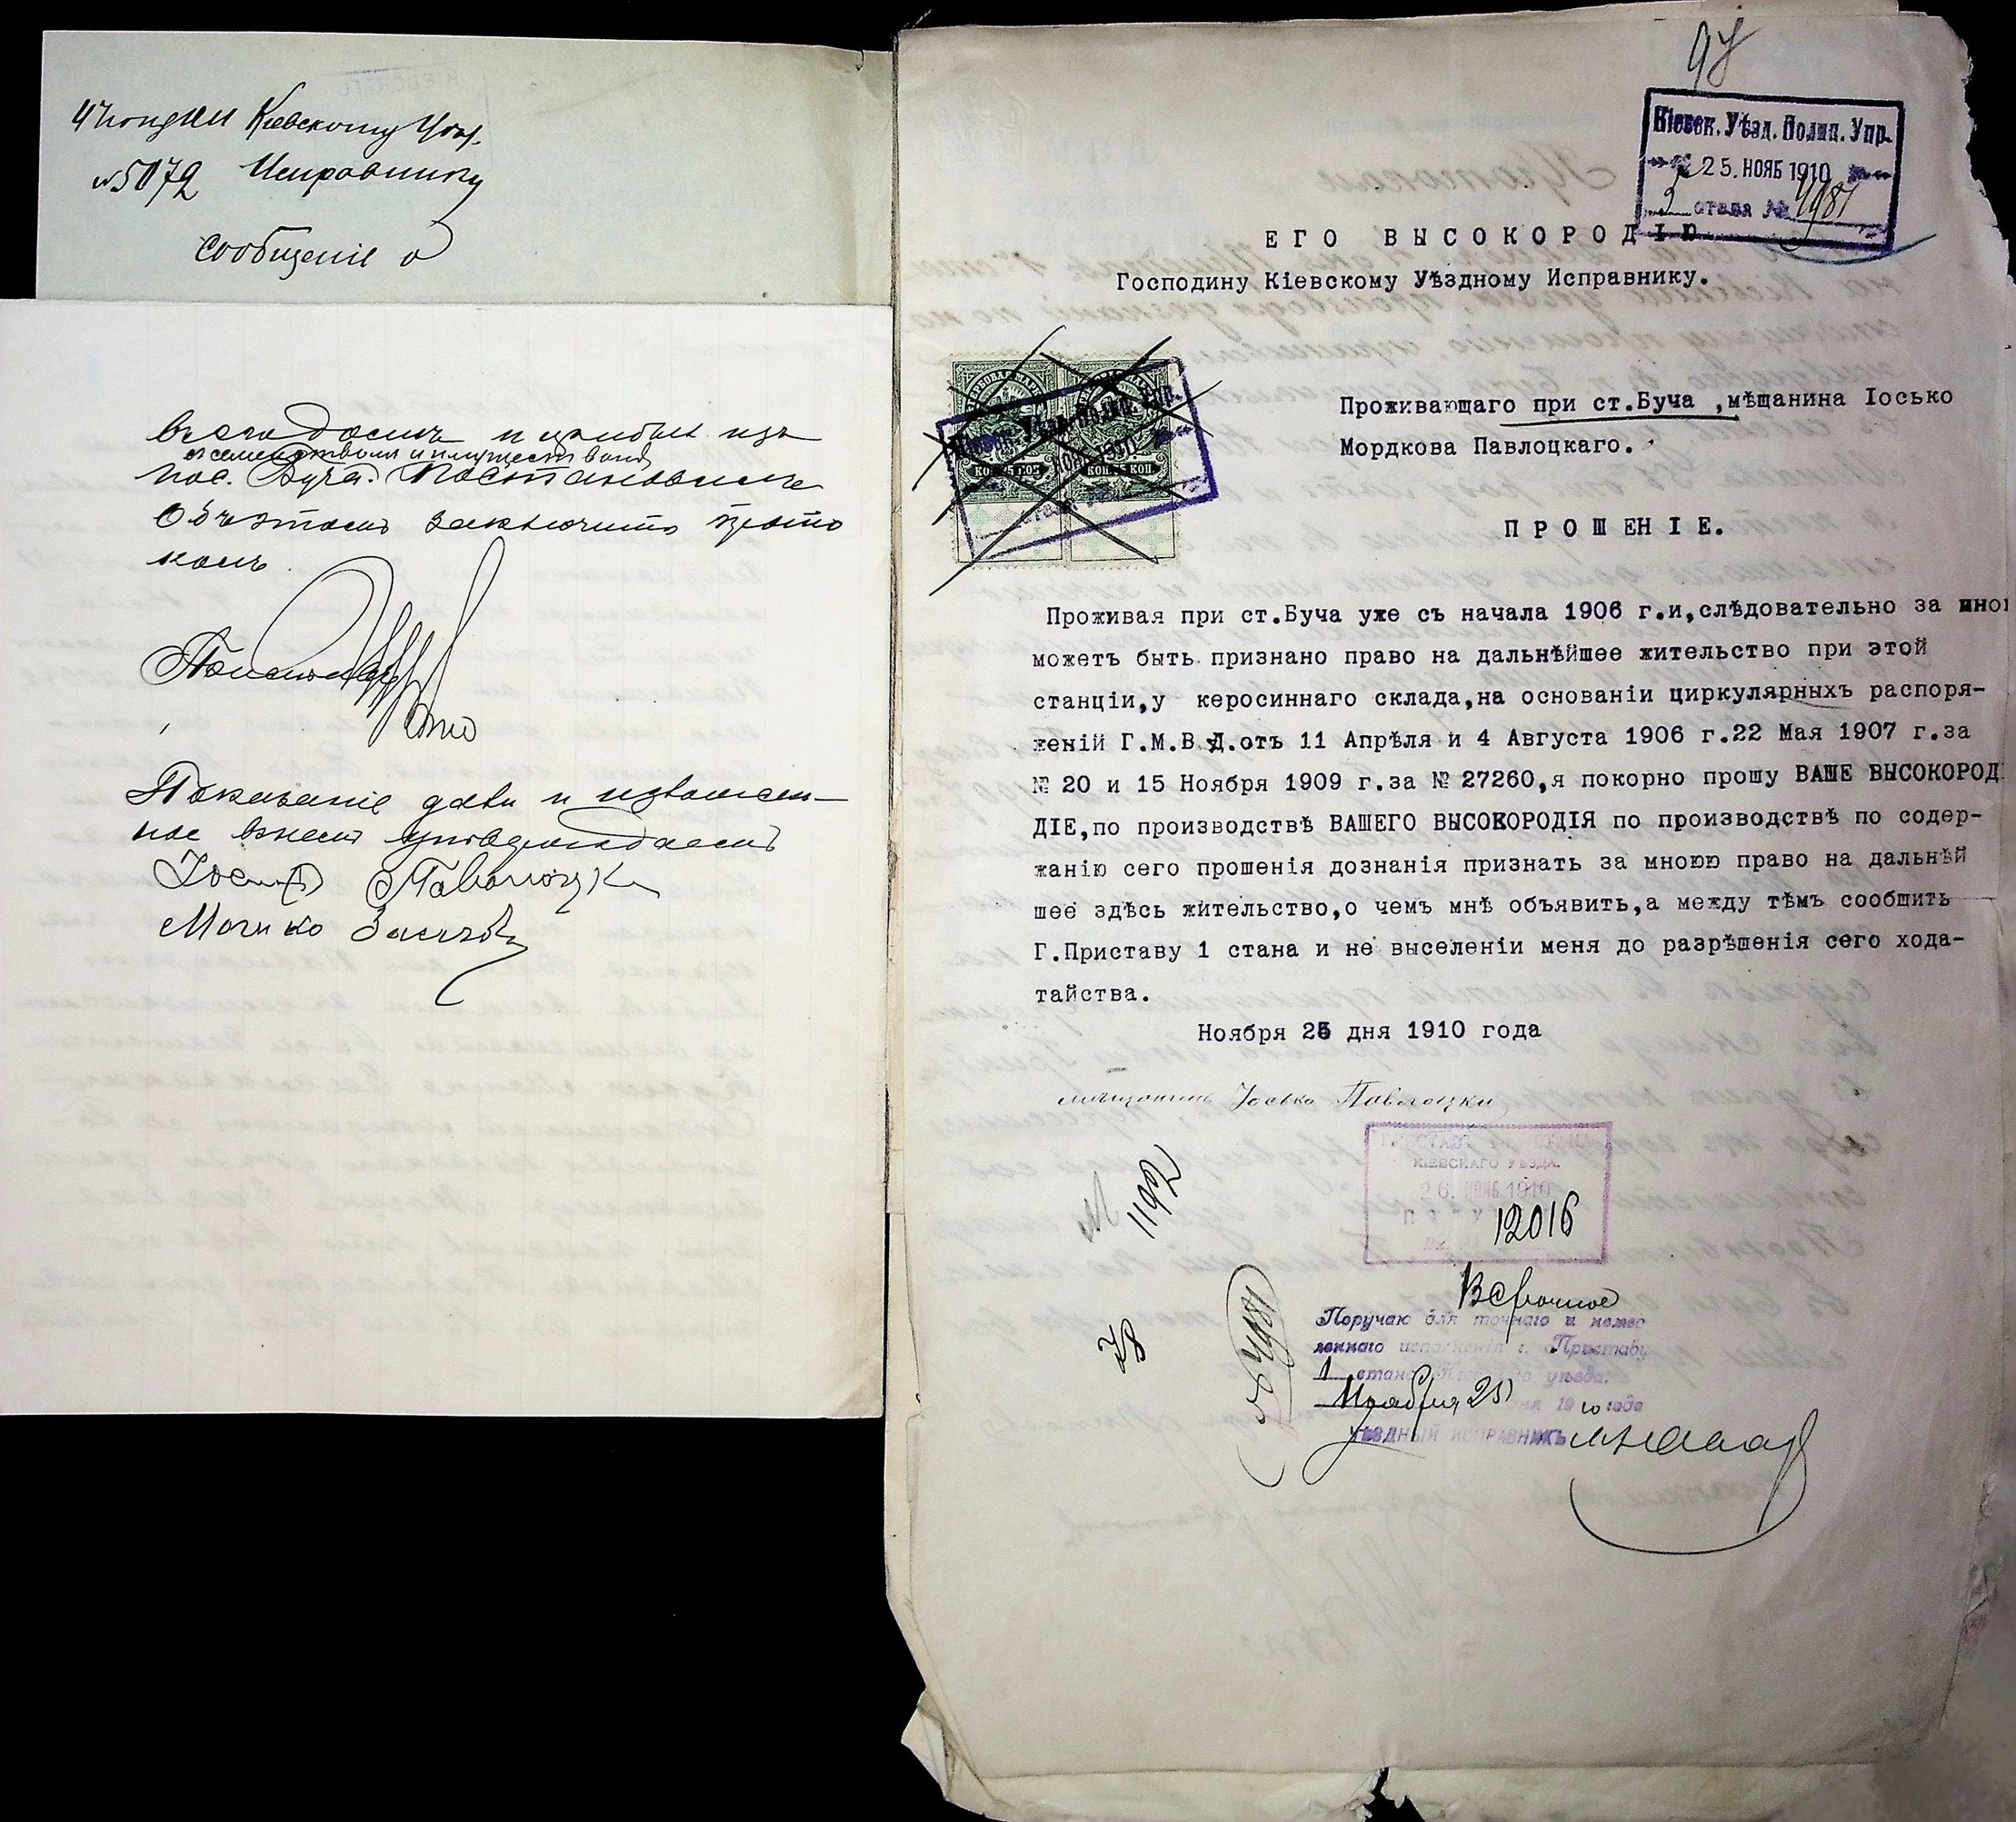 Кіевскому Уѣзд.
№ 5072 Исправнику
Сообщеніе о
пос. Буча. Постановилъ
Объ этомъ заключить прото
колъ.
Показаніе дали и
Іосифъ Паволоцкій
Мошко
98
Кіевск. Уѣзд. Полиц. Упр.
25. НОЯБ 1910
3 стола № 4981
ЕГО ВЫСОКОРОДІЮ
Господину Кіевскому Уѣздному Исправнику.
Проживающаго при ст.Буча ,мѣщанина Іосько
Мордкова Павлоцкаго.
ПРОШЕНІЕ.
Проживая при ст.Буча уже съ начала 1906 г.и,слѣдовательно за мною
можетъ быть признано право на дальнѣйшее жительство при этой
станціи,у керосиннаго склада,на основаніи циркулярныхъ распоря-
женій Г.М.В.Д.отъ 11 Апрѣля и 4 Августа 1906 г.22 Мая 1907 г.за
№ 20 и 15 Ноября 1909 г.за № 27260,я покорно прошу ВАШЕ ВЫСОКОРОД
ДІЕ,по производствѣ ВАШЕГО ВЫСОКОРОДІЯ по производствѣ по содер-
жанію сего прошенія дознанія признать за мною право на дальнѣй
шее здѣсь жительство,о чемъ мнѣ объявить,а между тѣмъ сообщить
Г.Приставу 1 стана и не выселеніи меня до разрѣшенія сего хода-
тайства.
Ноября 25 дня 1910 года
мѣщанинъ Іосько Павлоцкій
ПРИСТАВЪ 1 СТАНА
КІЕВСКАГО УѢЗДА.
26. НОЯБ 1910
12016
М 1192
78
4981
Всрочное
Поручаю для точнаго и немед
леннаго исполненія г. Приставу
1 стана Кіевскаго уѣзда.
Ноября 25 дня 1910 года
УѢЗДНЫЙ ИСПРАВНИКЪ